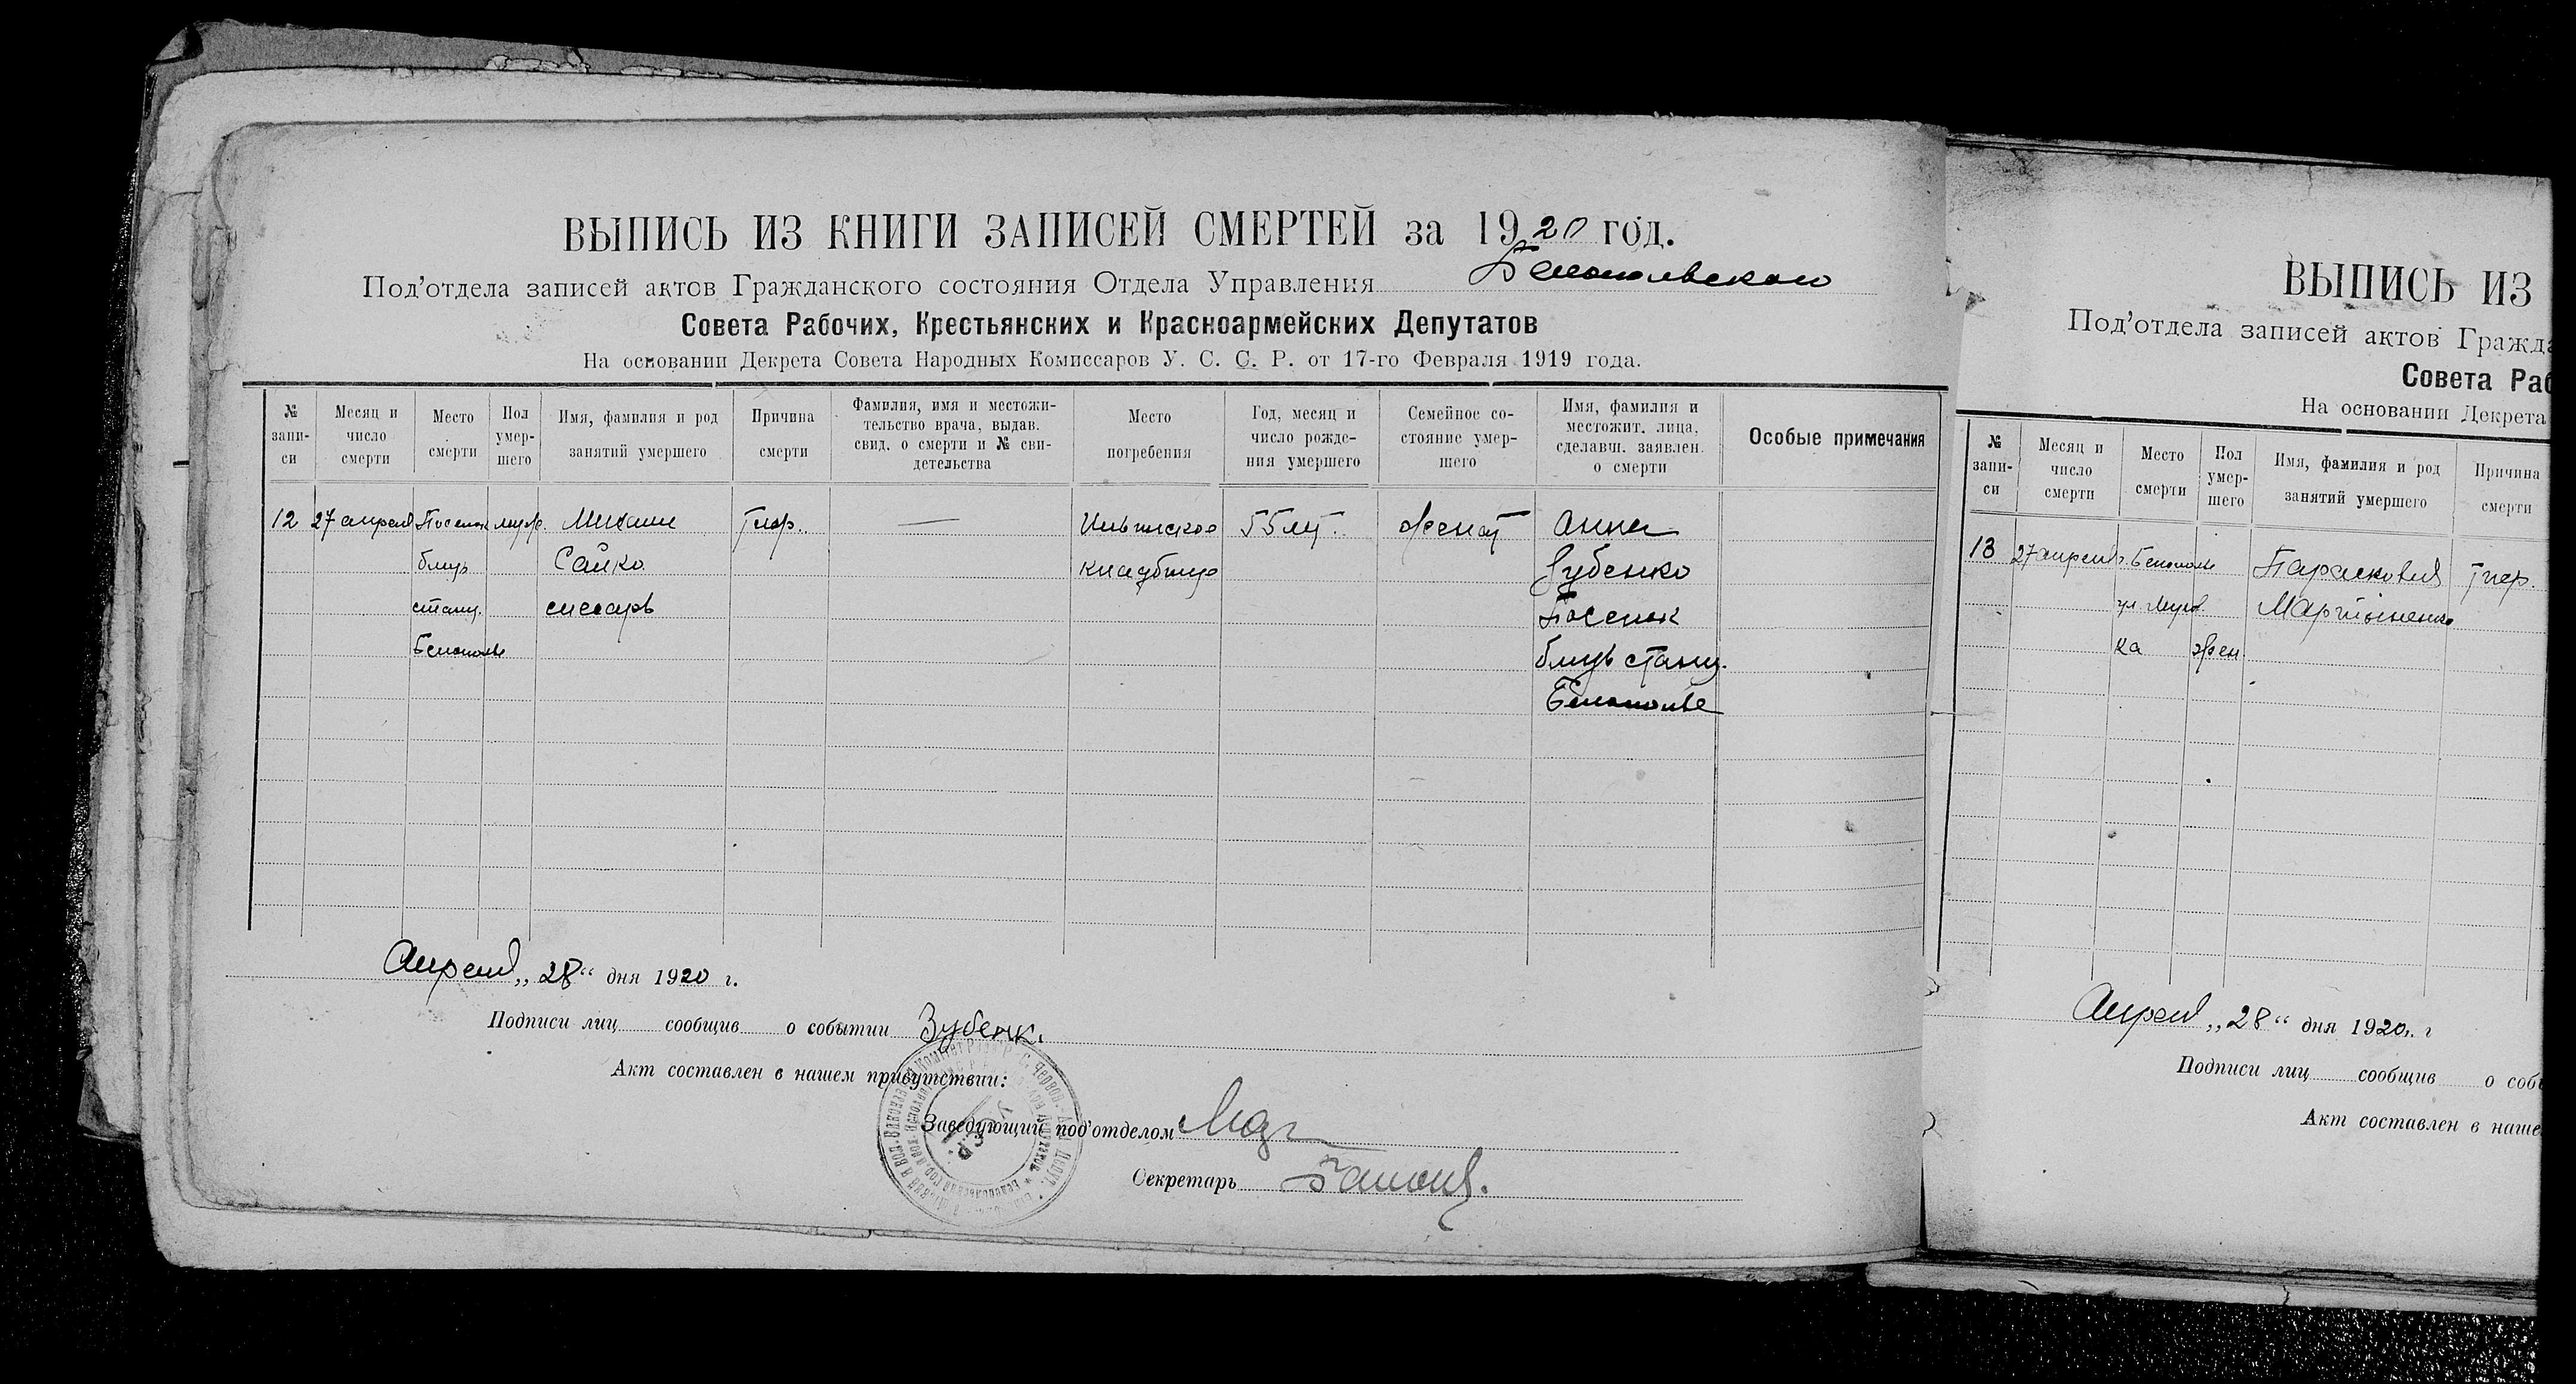 ВЫПИСЬ ИЗ КНИГИ ЗАПИСЕЙ СМЕРТЕЙ за 1920 год.
Под'отдела записей актов Гражданского состояния Отдела Управления Белопольского
Совета Рабочих, Крестьянских и Красноармейских Депутатов
На основании Декрета Совета Народных Комиссаров У. С. С. Р. от 17-го Февраля 1919 года.
№ запи- си
Месяц и число смерти
Место смерти
Пол умер- шего
Имя, фамилия и род занятий умершего
Причина смерти
Фамилия, имя и местожи- тельство врача, выдав. свид. о смерти и № сви- детельства
Место погребения
Год, месяц и число рожде- ния умершего
Семейное со- стояние умер- шего
Имя, фамилия и местожит. лица, сделавш. заявлен. о смерти
Особые примечания
12 27 апреля Поселок муж. Михаил Тиф. — Ильинское 55 лет. женат Анна
близь Сайко кладбище Зубенко
станц. слесарь Поселок
Белополье близь станц.
Белополье
Апреля „28“ дня 1920 г.
Подписи лиц сообщив о событии Зубенк.
Акт составлен в нашем присутствии:
Заведующий под'отделом
Секретарь
ВЫПИСЬ ИЗ
Под'отдела записей актов Гражда
Совета Раб
На основании Декрета
№ запи- си
Месяц и число смерти
Место смерти
Пол умер- шего
Имя, фамилия и род занятий умершего
Причина смерти
13 27 апреля г. Белополье Парасковия Тиф.
ул. Мартыненко
ка жен.
Апреля „28“ дня 1920 г
Подписи лиц сообщив о собы
Акт составлен в наше